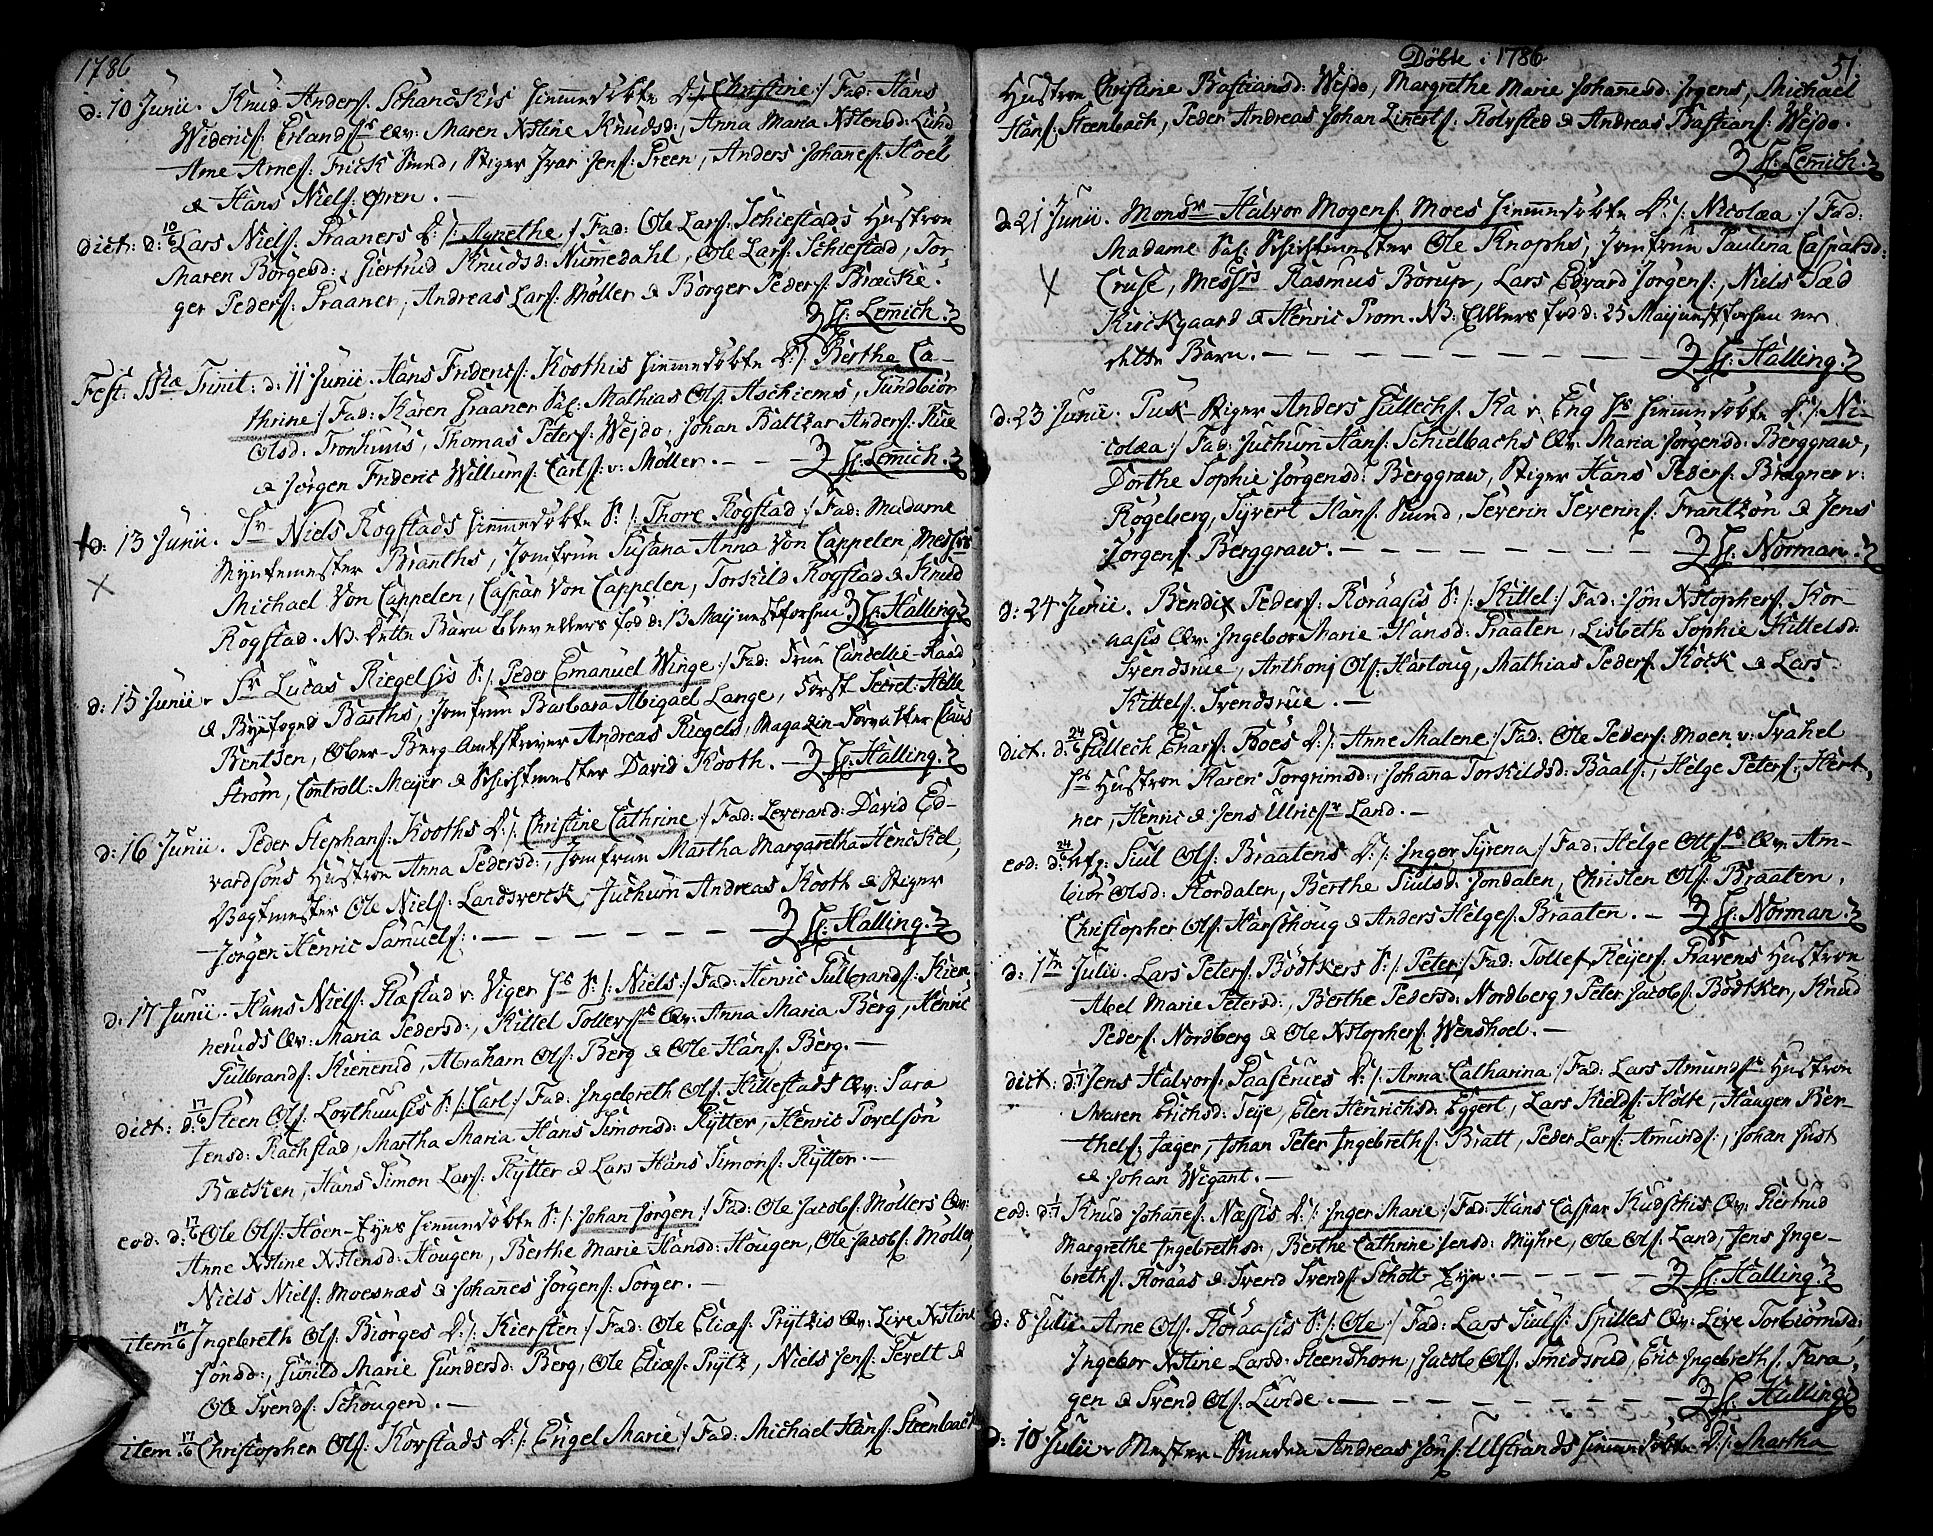 1786
d: 10 Junii. Knud Anders: Schanckis hiemmedøbte D: /: Christine :/ Fad: Hans
Widerics: Erlands:s Qv: Maren Xstine Knudsd:, Anna Maria Xstensd: Lund
Arne Arnes: Frick Smed, Stiger Ivar Jens: Preen, Anders Johanes: Hoel
& Hans Niels: Gren. —
dict: d: 10/6 Lars Niels: Praaners D: /: Agnethe :/ Fad: Ole Lars: Schiestads Hustroe
Maren Børgesd:, Giertrud Knudsd: Numedahl, Ole Lars: Schiestad, Tor-
ger Peders: Praaner, Andreas Lars: Møller & Børger Peders: Bræcke.
H: Lemich.
Fest: SSæ Trinit: d: 11 Junii. Hans Frideric: Koothis hiemmedøbte D: /: Berthe Ca-
thrine :/ Fad: Karen Praaner Sal: Mathias Ols: Aschiems, Gundbiør
Olsd: Tronhuus, Thomas Peters: Wejdo, Johan Baltzar Anders: Rue
& Jørgen Frideric Willums: Carls: v: Møller. — — — H: Lemich.
d: 13 Junii. Sr Niels Rogstads hiemmedøbte S: /: Thore Rogstad :/ Fad: Madame
Myntemester Branths, Jomfrue Susana Anna Von Cappelen, Messrs
Michael Von Cappelen, Caspar Von Cappelen, Torskild Rogstad & Knud
Rogstad. NB. dette Barn blev ellers fød d: 13 Maij næstforhen H: Halling
d: 15 Junii. Sr Lucas Riegelsis S: /: Peder Emanuel Winge :/ Fad: Frue Cancellie-Raad
& Byefoged Barths, Jomfrue Barbara Abigael Lange, Forst Secret: Helle
Bentsen, Ober-Berg-Amtskriver Andreas Riegels, Magazin-Forvalter Claus
Strøm, Controll: Meijer & Schichtmester David Kooth. — H: Halling.
d: 16 Junii. Peder Stephans: Kooths D: /: Christine Cathrine :/ Fad: Leverand: David Ed-
vardsøns Hustroe Anna Pedersd:, Jomfrue Martha Margaretha Henckel
Vagtmester Ole Niels: Landsverck, Juchum Andreas Kooth & Stiger
Jørgen Henric Samuels: — — — — — — H: Halling.
d: 17 Junii. Hans Niels: Plæstad v: Viger Hs S: /: Niels :/ Fad: Henric Gulbrands: Kien-
neruds Qv: Maria Pedersd:, Kittel Tollefs:s Qv: Anna Maria Berg, Henric
Gulbrands: Kienerud, Abraham Ols: Berg & Ole Hans: Berg. —
dict: d: 17/6 Steen Ols: Lovthuusis S: /: Carl :/ Fad: Ingebreth Ols: Hillestads Qv: Sara
Jensd: Rachstad, Martha Maria Hans Simonsd: Rytter, Henric Povelsøn
Bæcken, Hans Simon Lars: Rytter & Lars Hans Simons: Rytter. —
eod: d: 17/6 Ole Ols: Hoen-Eyes hiemmedøbte S: /: Johan Jørgen :/ Fad: Ole Jacobs: Møllers Qv:
Anne Xstine Xstensd: Hougen, Berthe Marie Hansd: Hougen, Ole Jacobs: Møller,
Niels Niels: Moesnæs & Johanes Jørgens: Sorger. —
item 17/6 Ingebreth Ols: Biørges D: /: Kiersten :/ Fad: Ole Elias: Prytzis Qv: Live Xstine
Jonsd:, Gunild Marie Gundersd: Berg, Ole Elias: Prytz, Niels Jens: Tevelt &
Ole Svends: Schougen. —
item 17/6 Christopher Ols: Korstads D: /: Engel Marie :/ Fad: Michael Hans: Steenbach
Døbte i 1786.
51.
Hustroe Christine Bastiansd: Wejdo, Margrethe Marie Johanesd: Irgens, Michael
Hans: Steenbach, Peder Andreas Johan Linerts: Rolvsted & Andreas Bastians: Wejdo.
H: Lemich.
d: 21 Junii. Monsr Halvor Mogens: Moes hiemmedøbte D: /: Nicolæa :/ Fad:
Madame Sal: Schichtmester Ole Knophs, Jomfrue Paulina Casparsd:
Cruse, Messrs Rasmus Borup, Lars Edvard Jørgens:, Niels Sæd
Kirckgaard & Henric Prom. NB: Ellers fød d: 25 Maij næstforhen er
dette Barn. — — — — — — — H: Halling.
d: 23 Junii. Puk-Stiger Anders Gullechs: Ka v: Eng Hs hiemmedøbte D: /: Ni-
colæa :/ Fad: Juchum Hans: Schielbachs Qv: Maria Jørgensd: Berggraw,
Dorthe Sophie Jørgensd: Berggraw, Stiger Hans Peders: Bragner v:
Rogeberg, Syvert Hans: Smed, Severin Severins: Frantzøn & Jens
Jørgens: Berggraw. — — — — — — H: Norman.
d: 24 Junii. Bendix Peders: Roraasis S: /: Kittel :/ Fad: Jon Xstophers: Kor-
aasis Qv: Ingebor Marie Hansd: Praaten, Lisbeth Sophie Kittelsd:
Svendsrue, Anthonj Ols: Hartoug, Mathias Peders: Kock & Lars
Kittels: Svendsrue. —
dict: d: 24/6 Gullech Enars: Boes D: /: Anne Malene :/ Fad: Ole Peders: Moen v: Svahel
Hs Hustroe Karen Torgrimsd:, Johana Torskildsd: Baals:, Helge Peters: Hert-
ner, Henric & Jens Ulrics:r Land. —
eod: d: 24/6 Afg: Siul Ols: Braatens D: /: Inger Syrena :/ Fad: Helge Ols:s Qv: Am-
biør Olsd: Hordalen, Berthe Siulsd: Jondalen, Christen Ols: Braaten,
Christopher Ols: Harschoug & Anders Helges: Braaten. — H: Norman.
d: 1te Julii. Lars Peters: Bødtkers S: /: Peter :/ Fad: Tollef Reijers: Ravens Hustroe
Abel Marie Petersd:, Berthe Pedersd: Nordberg, Peter Jacobs: Bødtker, Knud
Peders: Nordberg & Ole Xstophers: Wenshoel. —
dict: d: 1/7 Jens Halvors: Paaserues D: /: Anna Catharina :/ Fad: Lars Amunds:s Hustroe
Maren Erichsd: Teije, Elen Henrichsd: Eggert, Lars Kields: Holte, Haagen Ber-
thels: Jager, Johan Peter Ingebreths: Bratt, Peder Lars: Amunds:, Johan Just
& Johan Wigant. —
eod: d: 1/7 Knud Johanes: Næssis D: /: Inger Marie :/ Fad: Hans Caspar Kudschis Qv: Giertrud
Margrethe Ingebrethsd:, Berthe Cathrine Jensd: Myhre, Ole Ols: Land, Jens Inge-
breths: Horaas & Svend Svends: Schott-Eye. — — — — — H: Halling.
d: 8 Julii. Arne Ols: Horaasis S: /: Ole :/ Fad: Lars Siuls: Spilles Qv: Live Torbiørnsd:,
Ingebor Xstine Larsd: Steenshorn, Jacob Ols: Smidsrud, Eric Ingebreths: Fara-
gen & Svend Ols: Lunde. — — — — — — H: Halling
d: 10 Julii. Mester-Svenden Andreas Jons: Ulstrands hiemmedøbte D: /: Martha